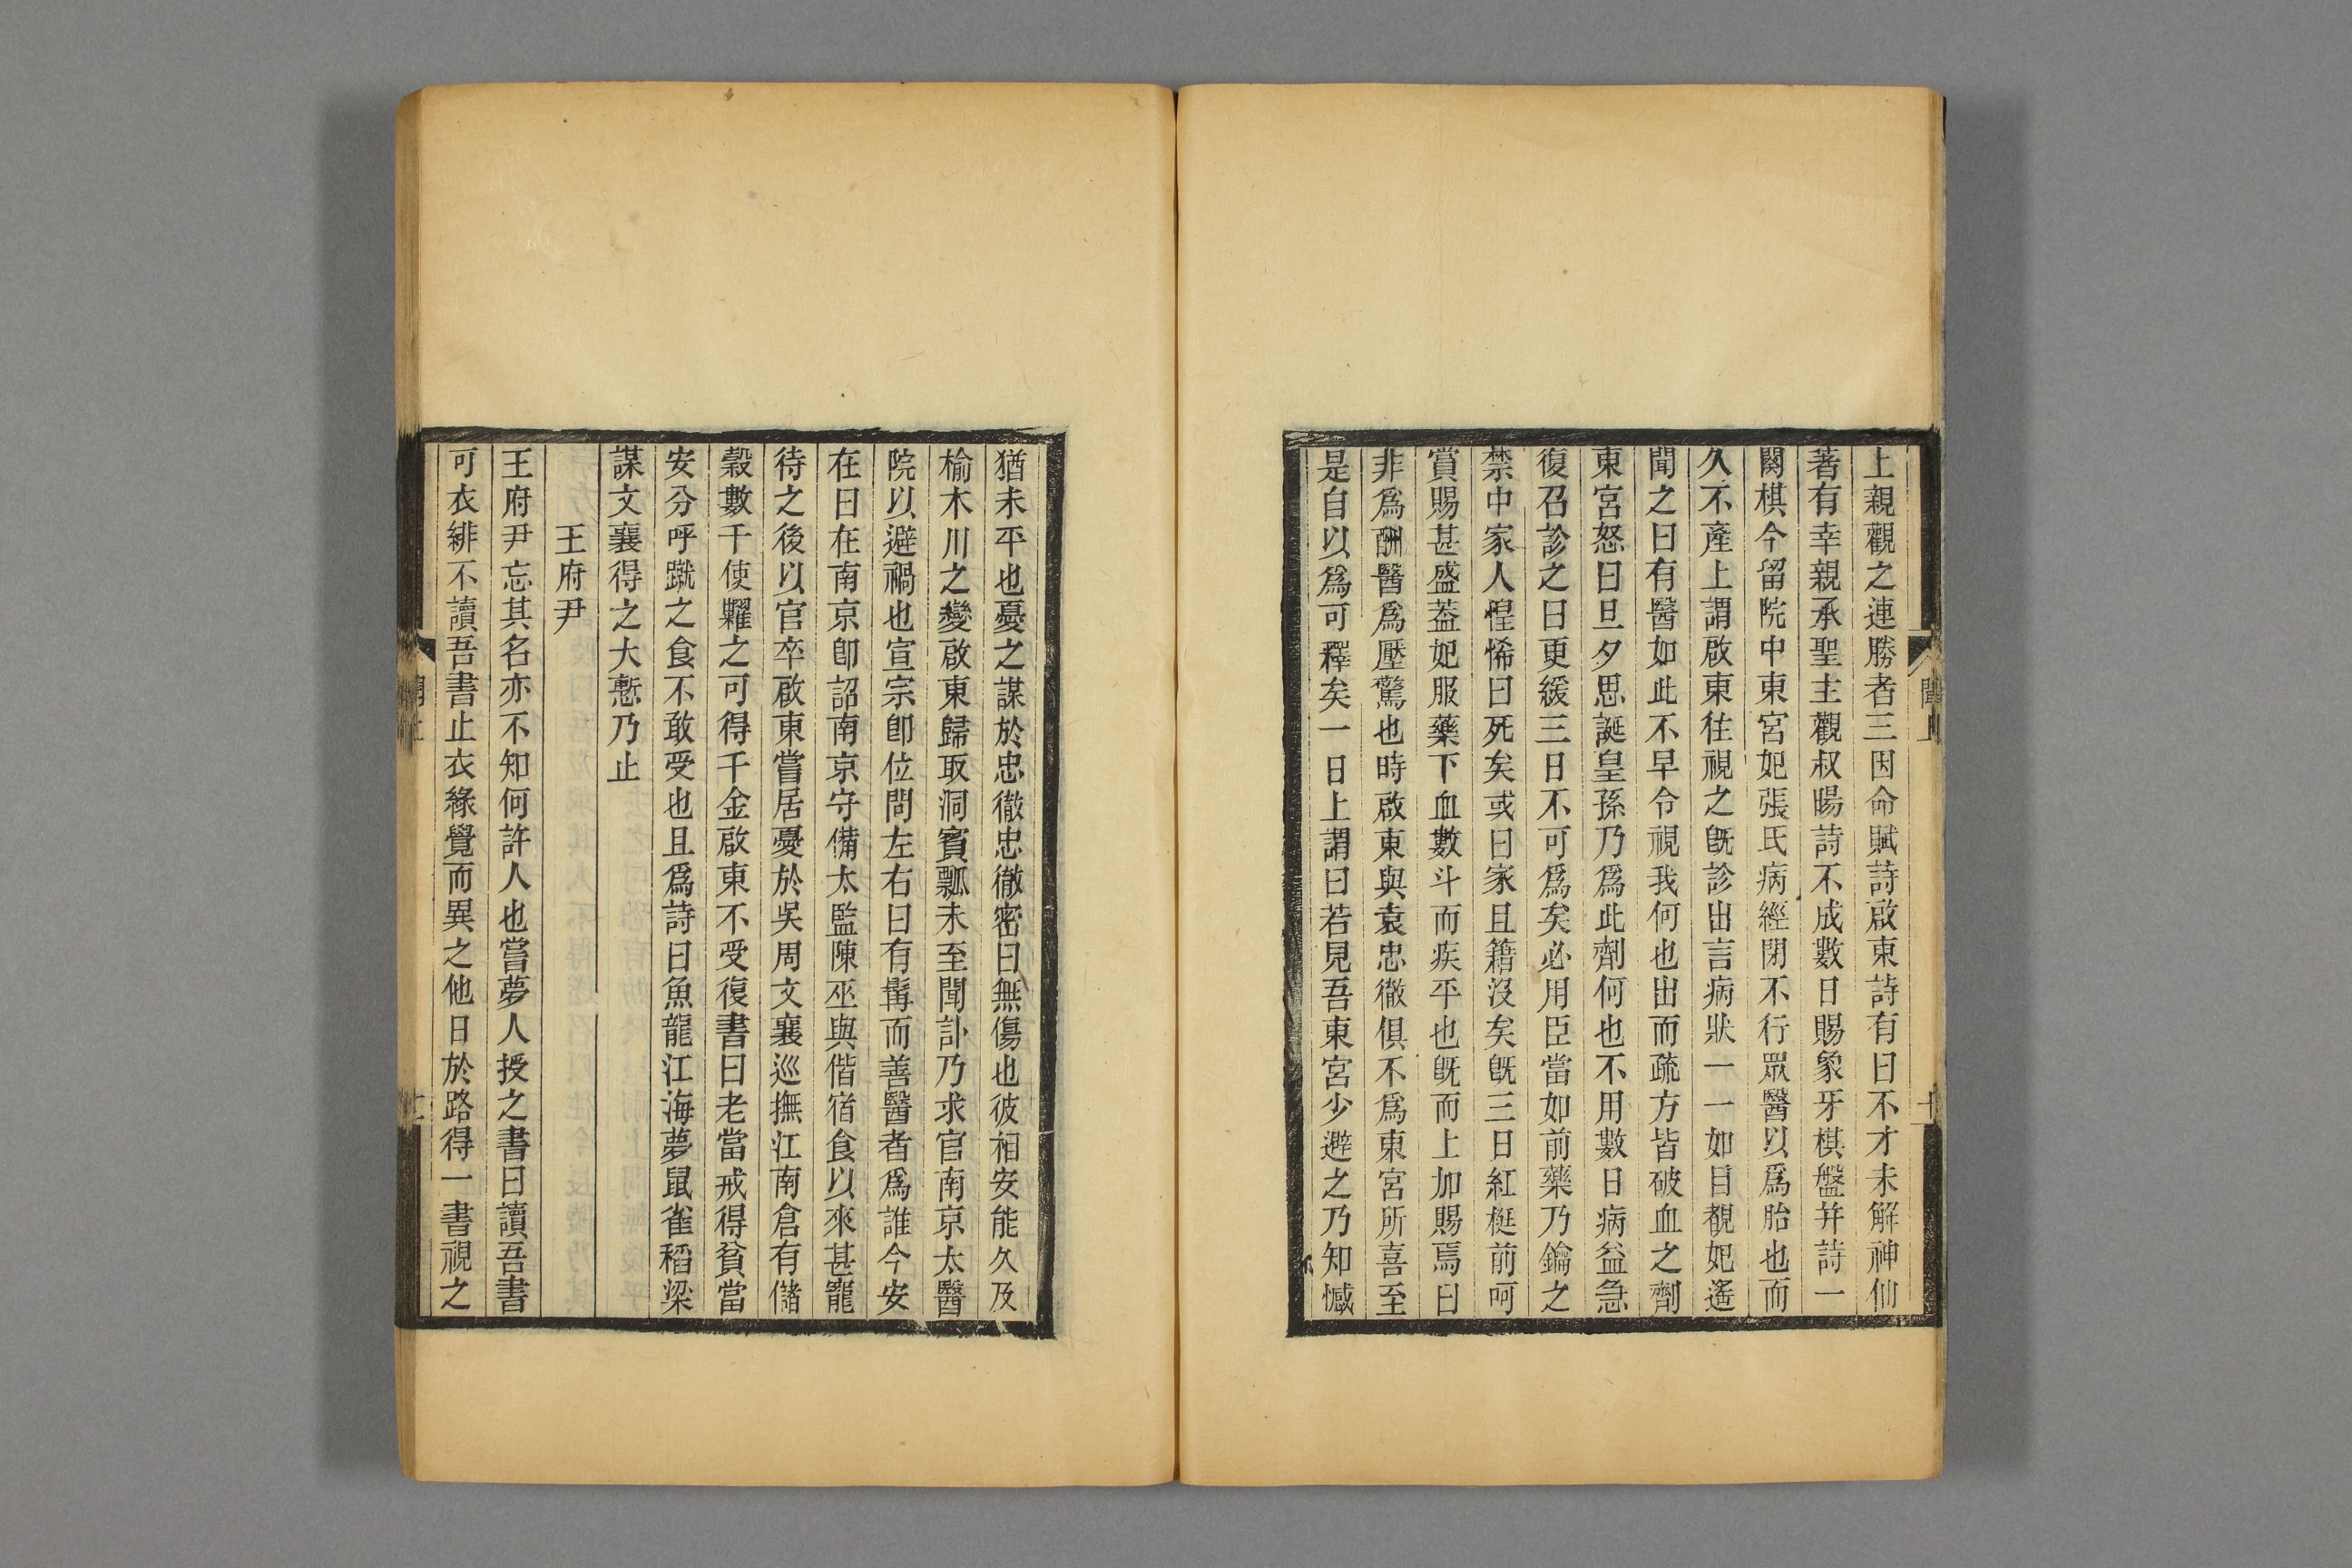 上親觀之連勝者三因命賦詩啟東詩有曰不才未解神仙
著有幸親承聖主觀叔暘詩不成數日賜象牙棋盤并詩一
闋棋今留院中東宮妃張氏病經閉不行眾醫以為胎也而
久不產上謂啟東往視之既診出言病狀一一如目覩妃遙
聞之曰有醫如此不早令視我何也出而疏方皆破血之劑
東宮怒曰旦夕思誕皇孫乃為此劑何也不用數日病益急
復召診之曰更緩三日不可為矣必用臣當如前藥乃鑰之
禁中家人惶怖曰死矣或曰家且籍沒矣既三日紅梃前呵
賞賜甚盛葢妃服藥下血數斗而疾平也既而上加賜焉曰
非為酬醫為壓驚也時啟東與袁忠徹俱不為東宮所喜至
是自以為可釋矣一日上謂曰若見吾東宮少避之乃知憾
猶未平也憂之謀於忠徹忠徹密曰無傷也彼相安能久及
榆木川之變啟東歸取洞賓瓢未至聞訃乃求官南京太醫
院以避禍也宣宗卽位問左右曰有髯而善醫者為誰今安
在曰在南京卽詔南京守備太監陳巫與偕宿食以來甚寵
待之後以官卒啟東嘗居憂於吳周文襄巡撫江南倉有儲
穀數千使糶之可得千金啟東不受復書曰老當戒得貧當
安分呼蹴之食不敢受也且為詩曰魚龍江海夢鼠雀稻粱
謀文襄得之大慙乃止
王府尹
王府尹忘其名亦不知何許人也嘗夢人授之書曰讀吾書
可衣緋不讀吾書止衣綠覺而異之他日於路得一書視之